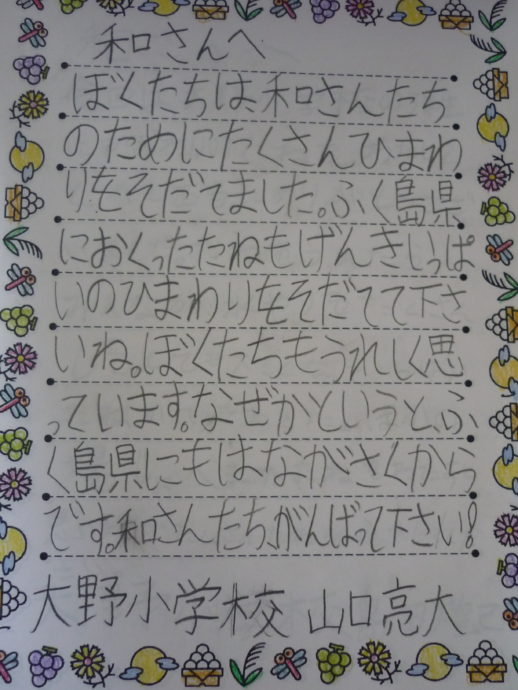 和さんへ
ぼくたちは、和さんたち
のためにたくさんひまわ
りをそだてました。ふく島県
におくったたねもげんきいっぱ
いのひまわりをそだてて下さ
いね。ぼくたちもうれしく思
っています。なぜかというと、ふ
く島県にもはながさくから
です。和さんたち、がんばって下さい!
大野小学校 山口亮大